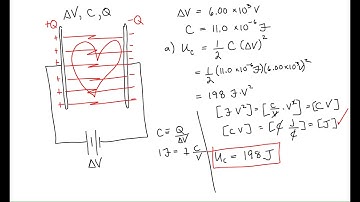 ΔV, C, Q
+Q
-Q
ΔV
ΔV = 6.00 × 10³ V
C = 11.0 × 10⁻⁶ F
a) U_c = 1/2 C (ΔV)²
= 1/2 (11.0 × 10⁻⁶ F)(6.00 × 10³ V)²
= 198 F·V²
[F V²] = [C/V · V²] = [C V]
[C V] = [C J/C] = [J] ✓
C = Q/ΔV
1 F = 1 C/V
U_c = 198 J